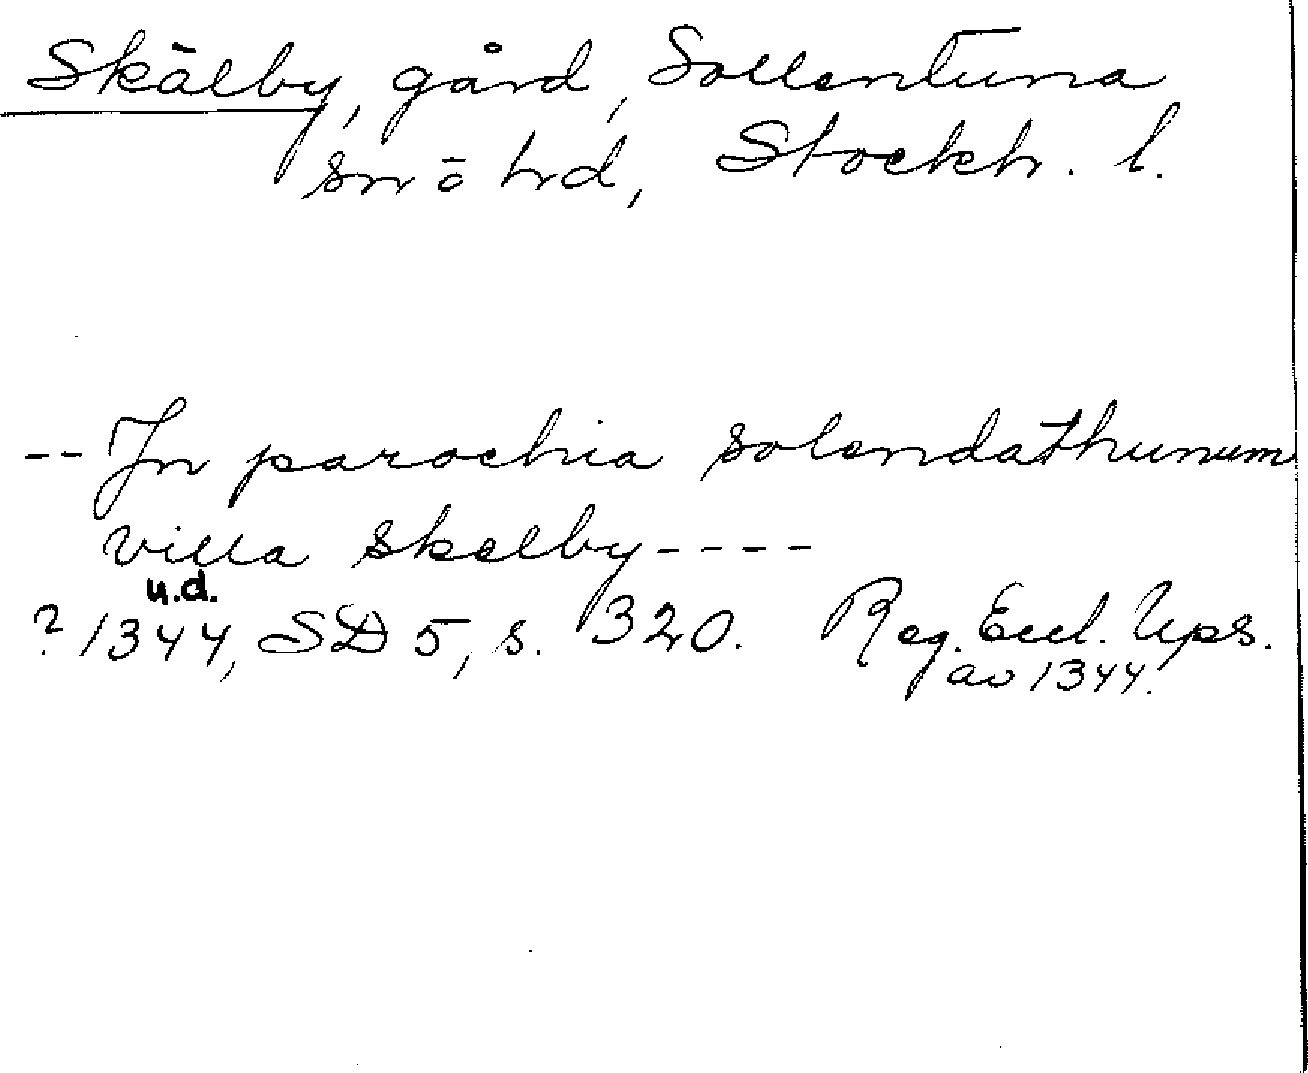 Skälby, gård, Sollentuna
sn ö hd, Stockh. l.
-- Jn parochia solendathunum
villa skelby----
u.d.
? 1344, SD 5, s. 320. Reg. Eccl. Ups.
av 1344.